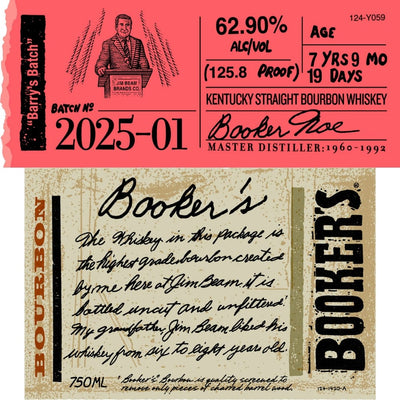 "Barry's Batch"
JIM BEAM
BRANDS CO.
BATCH Nº
2025-01
62.90%
ALC/VOL
(125.8 PROOF)
AGE
124-Y059
7 YRS 9 MO
19 DAYS
KENTUCKY STRAIGHT BOURBON WHISKEY
Booker Noe
MASTER DISTILLER: 1960-1992
BOURBON
Booker's
The Whiskey in this package is
the highest grade bourbon created
by me here at Jim Beam it is
bottled uncut and unfiltered.
My grandfather, Jim Beam liked his
whiskey from six to eight years old.
750ML
"Booker's" Bourbon is quality screened to
remove only pieces of charred barrel wood.
BOOKER'S®